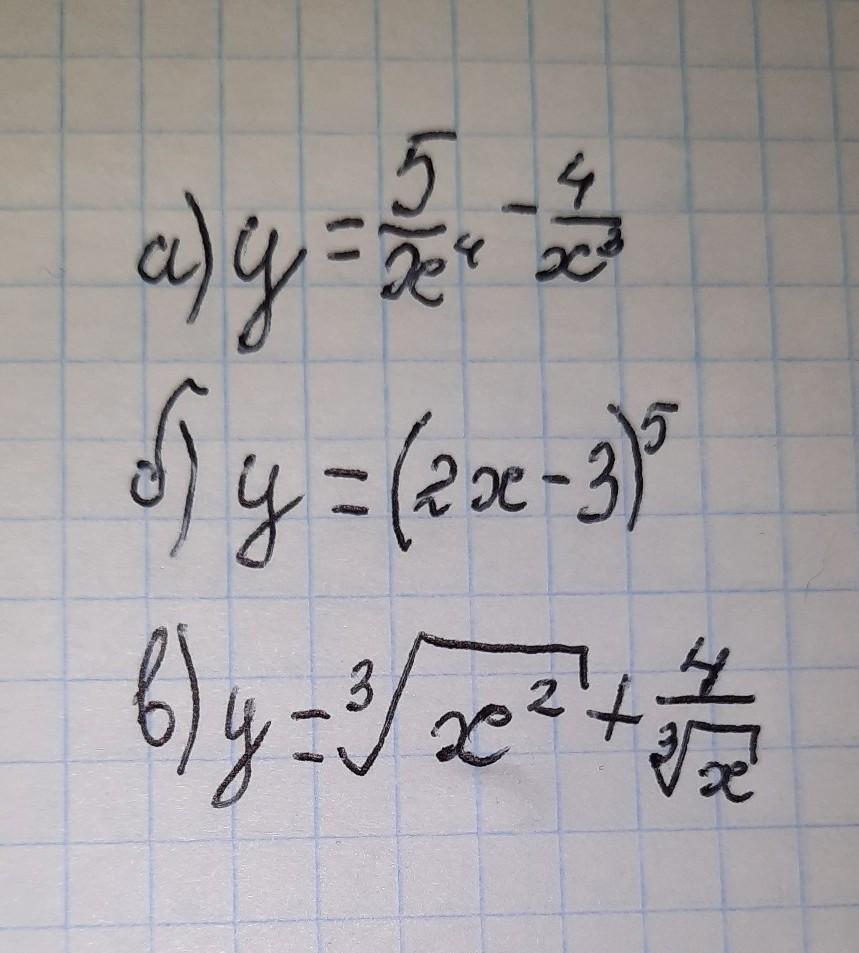 а) y = 5/x⁴ - 4/x³
б) y = (2x - 3)⁵
в) y = ³√x² + 4/³√x